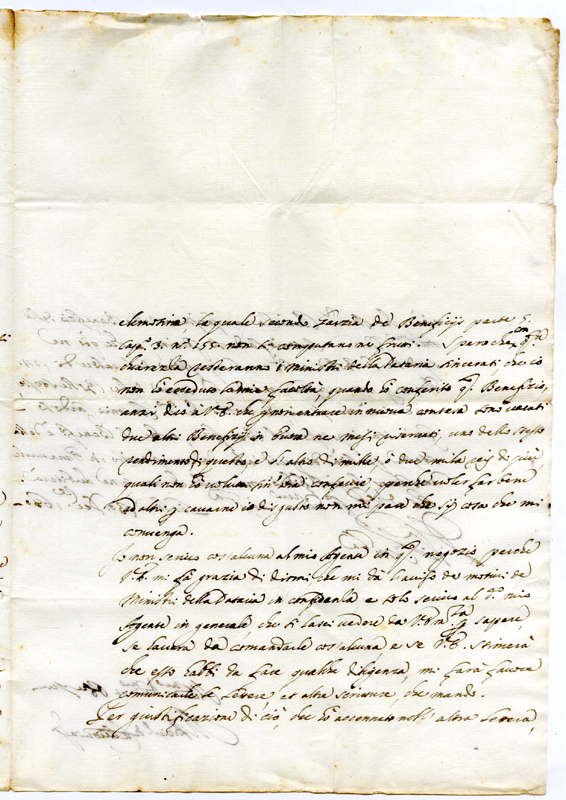 elemosina, la quale secondo Garzia de Beneficijs parte 5.
cap. 3. n.º 155. non si computano ne frutti. Spero che con q.ta
chiarezza resteranno i Ministri della Dataria sincerati, che io
non hò ecceduto la mia facoltà, quando hò conferito q.o Benefizio,
anzi dico a V.S. che
due altri Benefizij in ne mesi riservati, uno dello stesso
rendimento di questo, e l'altro di mille, ò due mila reis di più,
quali non hò voluto fin ora conferire, perche voler far bene
ad altri, e cavarne io disgusto non mi pare che sij cosa che mi
convenga.
Io non scrivo cos'alcuna al mio Agente in q.o negozio perche
V.S. mi fà grazia di dirmi che mi dà l'avviso de motivi de
Ministri della Dataria in confidenza, e solo scrivo al d.o mio
Agente in generale, che si lasci vedere da V.S. Ill.ma p. sapere,
se haverà da comandarle cos'alcuna, e se V.S. stimerà
che esso habbi da fare qualche diligenza, mi farà favore
comunicarle le lettere, et altre scritture, che mando.
Per giustificazione di ciò, che hò accennato nell'altra lettera,